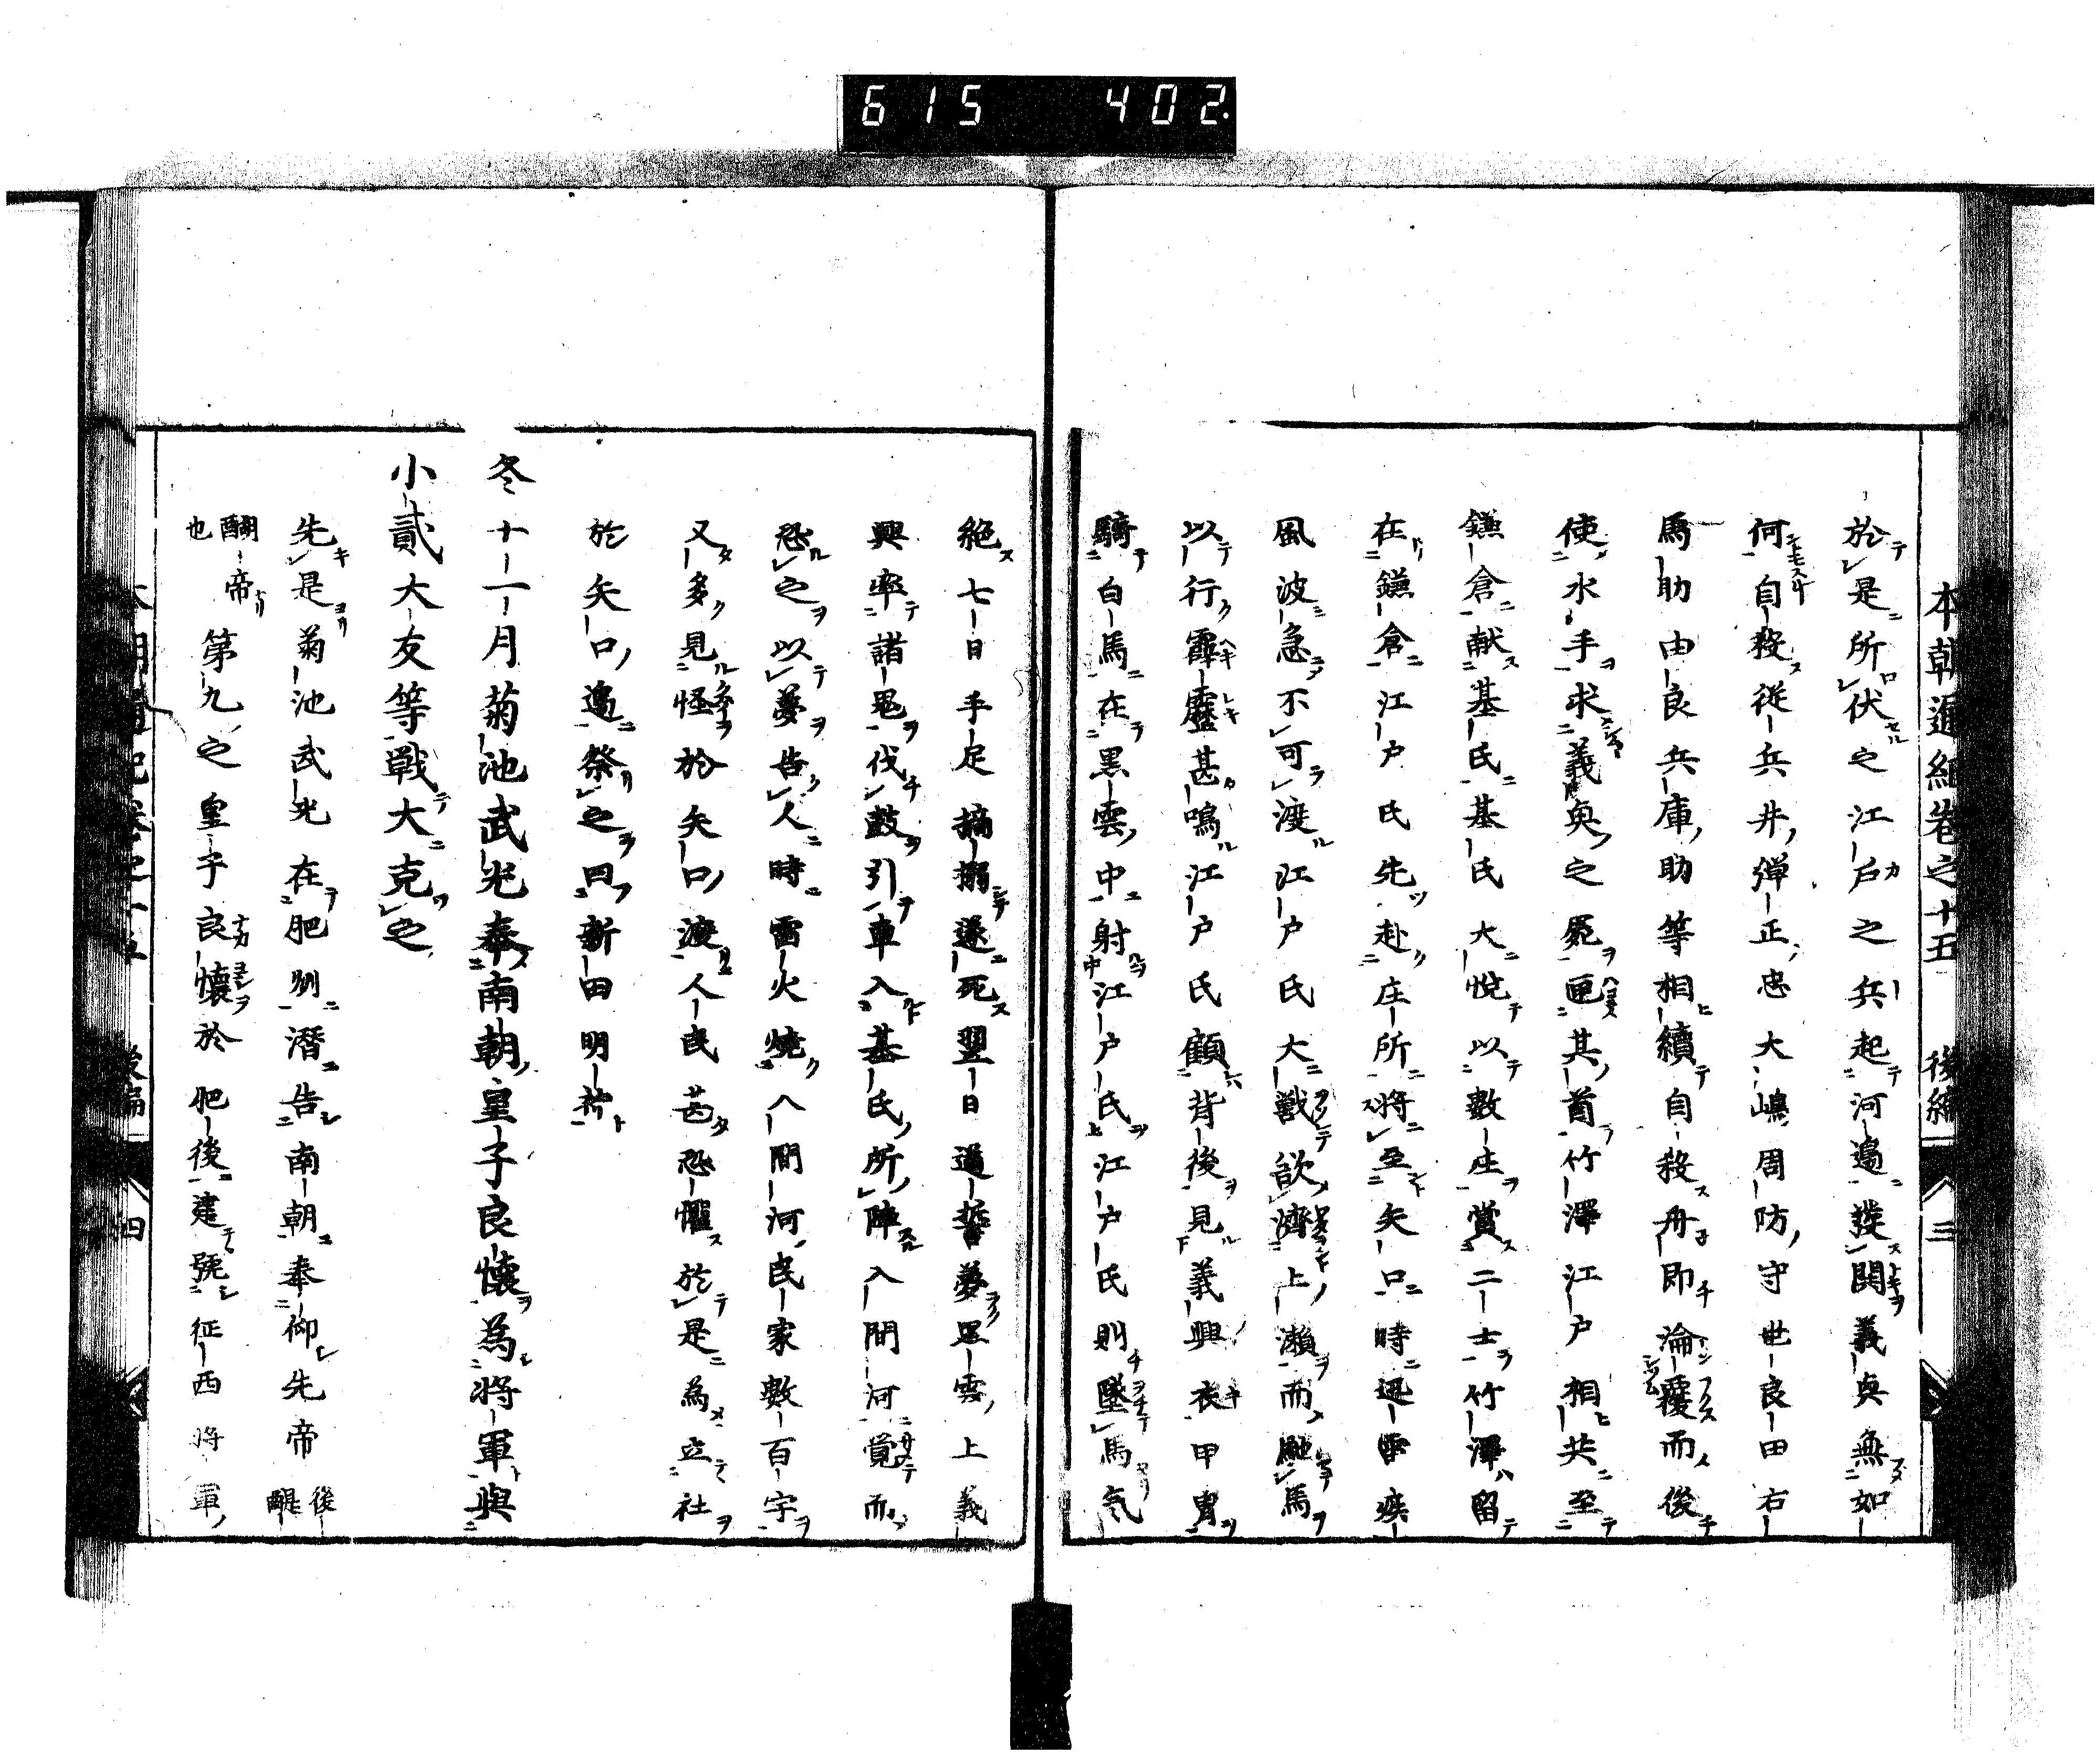 615 402.
本朝通紀卷之十五 後編 三
於是所伏之江戸之兵起河邉發鬨義興無如
何自殺從兵井彈正忠大嶋周防守世良田右
馬助由良兵庫助等相續自殺舟即淪覆而後
使水手求義興之屍匣其首竹澤江戸相共至
鎌倉献基氏基氏大悦以數庄賞二士竹澤留
在鎌倉江戸氏先赴庄所將至矢口時迅雷疾
風波急不可渡江戸氏大獣欲濟上瀬而馳馬
以行霹靂甚鳴江戸氏顧背後見義興衣甲冑
騎白馬在黒雲中射江戸氏江戸氏則墜馬気
絶七日手足搦遂死翌日道誓夢黒雲上義
興率諸鬼伐鼓引車入基氏所陣入間河覚而
恐之以夢告人時雷火燒入間河民家數百宇
又多見怪於矢口渡人民苦恐懼於是為立社
於矢口邉祭之曰新田明神
冬十一月菊池武光奉南朝皇子良懷為將軍與
小貳大友等戰大克之
先是菊池武光在肥州潛告南朝奉仰先帝後醍
醐帝也第九之皇子良懷於肥後建號征西將軍